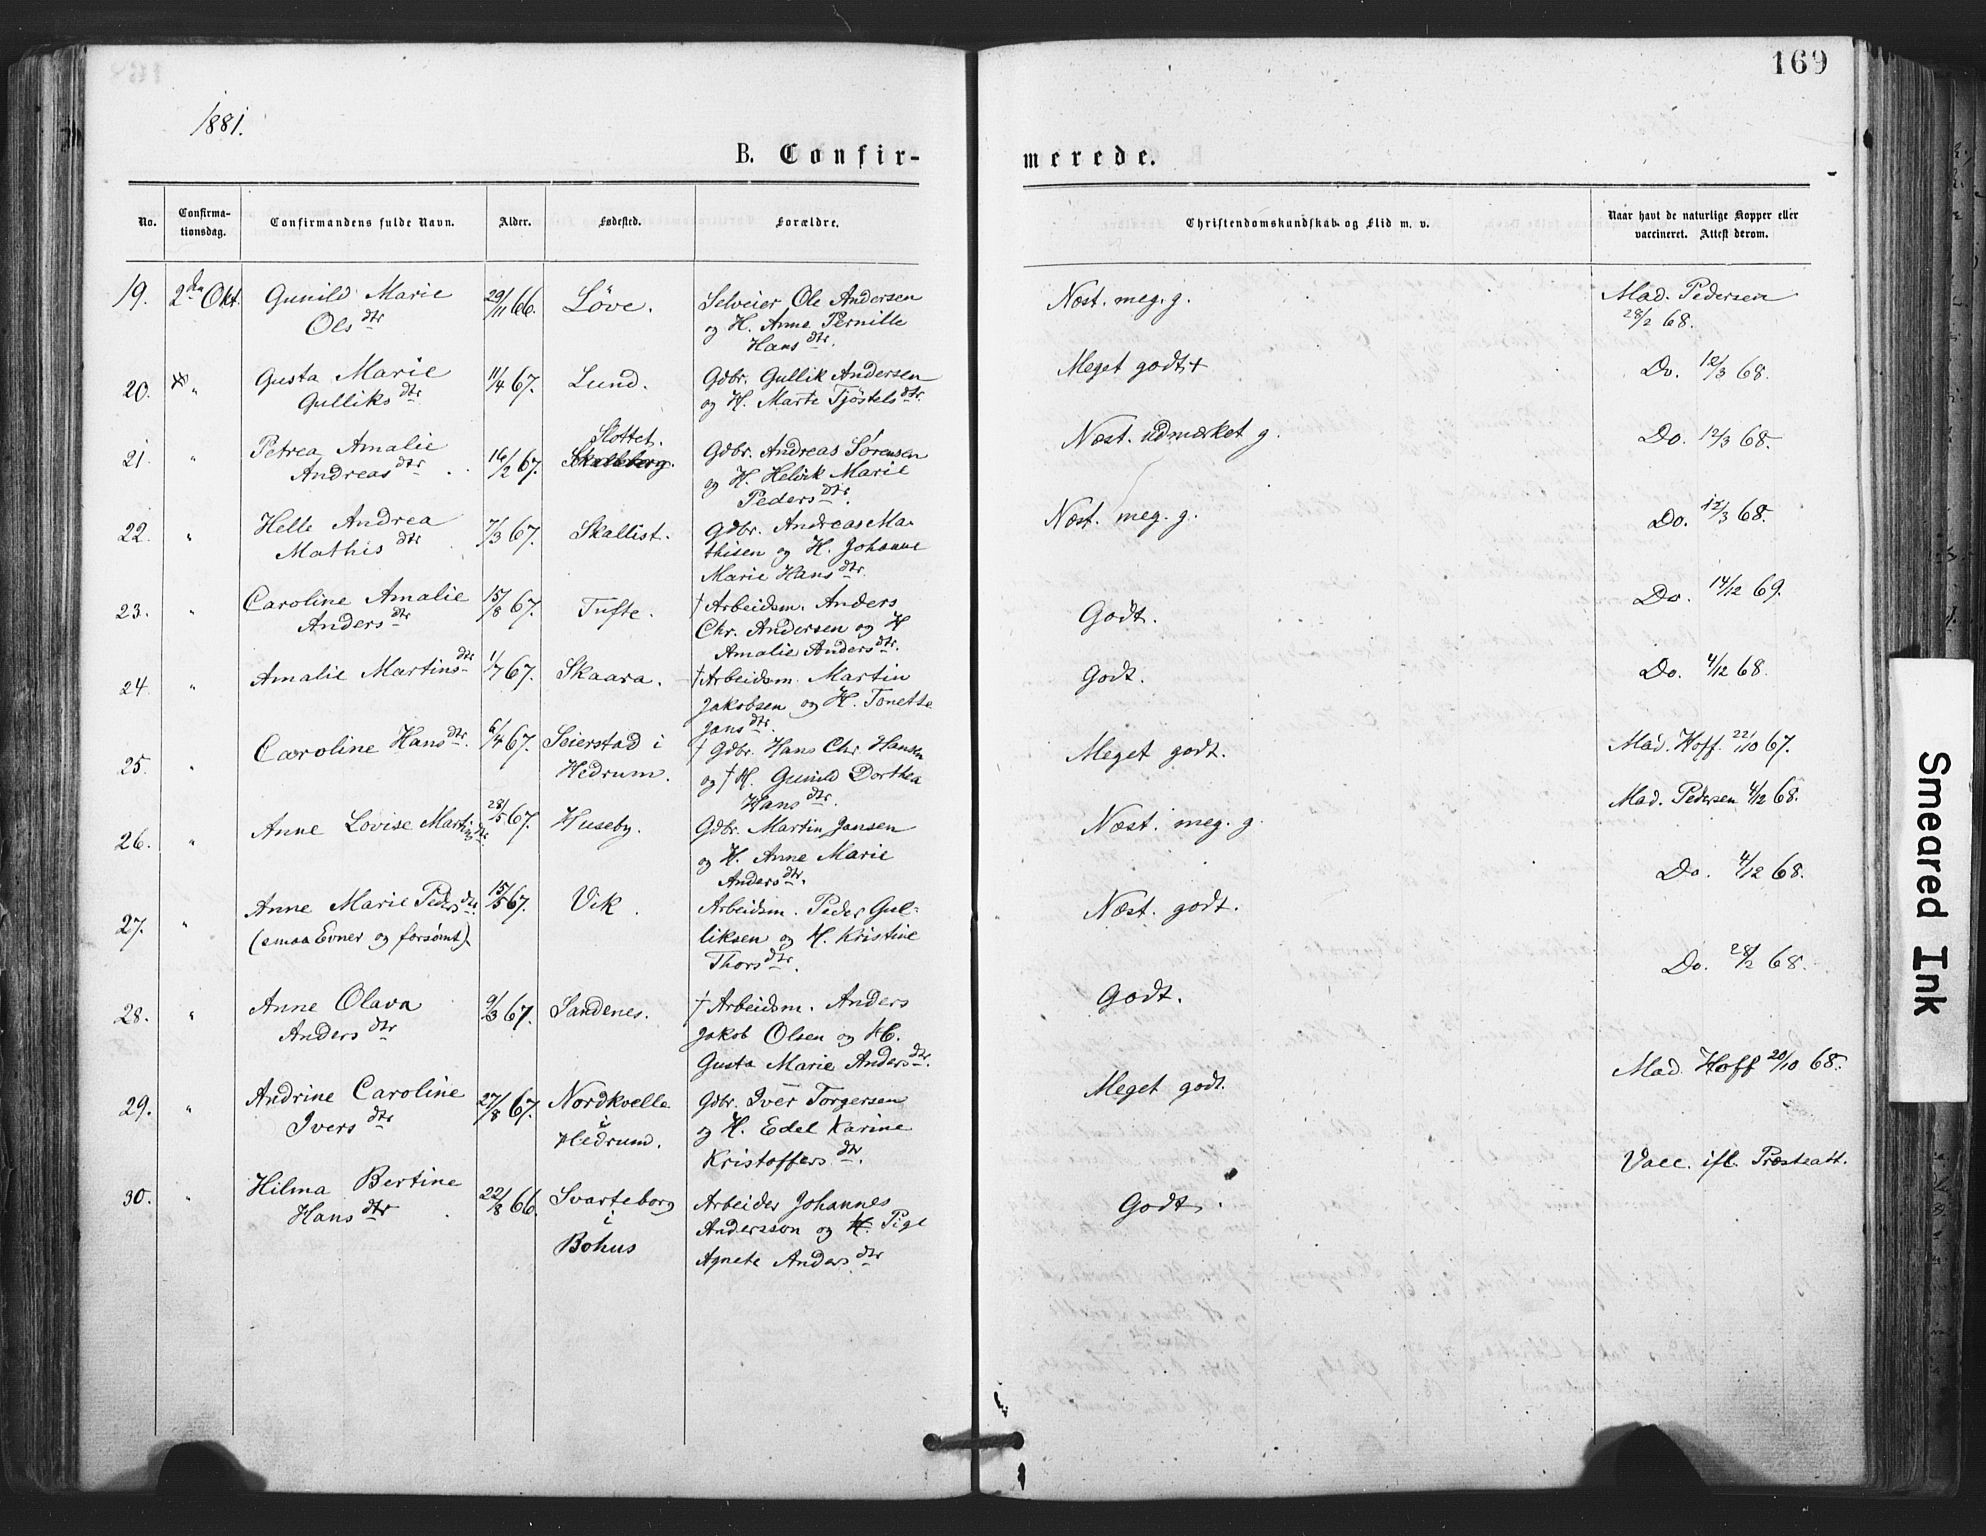 169
1881.
B. Confir-
merede.
No.
Confirma-
tionsdag.
Confirmandens fulde Navn.
Alder.
Fødested.
Forældre.
Christendomskundskab og Flid m. v.
Naar havt de naturlige Kopper eller
vaccineret. Attest derom.
19. 2den Okt. Gunild Marie
Olsdtr
29/11 66. Löve.
Selveier Ole Andersen
og H. Anne Pernille
Hansdtr.
Næst. meg. g.
Mad. Pedersen
28/2 68.
20. " Gusta Marie
Gulliksdtr
11/4 67. Lund.
Gdbr. Gullik Andersen
og H. Marte Tjöstelsdtr.
Meget godt +
Do. 12/3 68.
21. " Petrea Amalie
Andreasdtr
16/2 67. Slottet.
Skalleberg.
Gdbr. Andreas Sørensen
og H. Helvik Marie
Pedersdtr.
Næst. udmærket g.
Do. 12/3 68.
22. " Helle Andrea
Mathisdtr
7/3 67. Skallist.
Gdbr. Andreas Ma-
thisen og H. Johanne
Marie Hansdtr.
Næst. meg. g.
Do. 12/3 68.
23. " Caroline Amalie
Andersdtr
15/8 67. Tufte.
† Arbeidsm. Anders
Chr. Andersen og H
Amalie Andersdtr.
Godt.
Do. 14/12 69.
24. " Amalie Martinsdtr
1/7 67. Skaara.
† Arbeidsm. Martin
Jakobsen og H. Tonette
Jansdtr.
Godt.
Do. 4/12 68.
25. " Caroline Hansdtr.
6/4 67. Seierstad i
Hedrum.
† Gdbr. Hans Chr Hansen
og † H. Gunild Dorthea
Hansdtr.
Meget godt.
Mad. Hoff. 22/10 67.
26. " Anne Lovise Martinsdtr.
28/5 67. Huseby.
Gdbr. Martin Jansen
og H. Anne Marie
Andersdtr.
Næst. meg. g.
Mad. Pedersen 4/12 68.
27. " Anne Marie Pedersdtr.
(smaa Evner og forsømt).
15/5 67. Vik.
Arbeidsm. Peder Gul-
liksen og H. Kristine
Thorsdtr.
Næst. godt.
Do. 4/12 68.
28. " Anne Olava
Andersdtr
9/3 67. Sandenes.
† Arbeidsm. Anders
Jakob Olsen og H.
Gusta Marie Andersdtr.
Godt.
Do. 28/2 68.
29. " Andrine Caroline
Iversdtr
27/8 67. Nordkvelle
i
Hedrum.
Gdbr. Iver Torgersen
og H. Edel Karine
Kristoffersdtr.
Meget godt.
Mad. Hoff 20/10 68.
30. " Hilma Bertine
Hansdtr
22/8 66. Svarteborg
i
Bohus
Arbeider Johannes
Andersson og H. Pige
Agnete Andersdtr
Godt.
Vacc. ifl. Præsteatt.
Smeared Ink